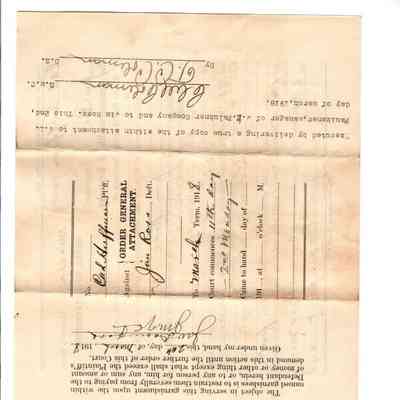 The object in serving this garnishment upon the within
named garnishees is to restrain them severally from paying to the
Defendant herein, or to any person for him, any sum or amount
of money or other thing except what shall exceed the Plaintiff's
demand in this action until the further order of this Court.
Given under my hand, this 2nd day of March 191 8
No.
Plt'ff.
against
ORDER GENERAL
ATTACHMENT.
Jim Ross Deft.
To March Term, 191 8
Court commences 11th day
2nd Monday
Came to hand day of
191 at o'clock M.
Executed by delivering a true copy of the within attachment to W.L.
Faulkner, manager of J. F. Faulkner Company and to Jim Ross. This 2nd.
day of march, 1918.
By D.S.